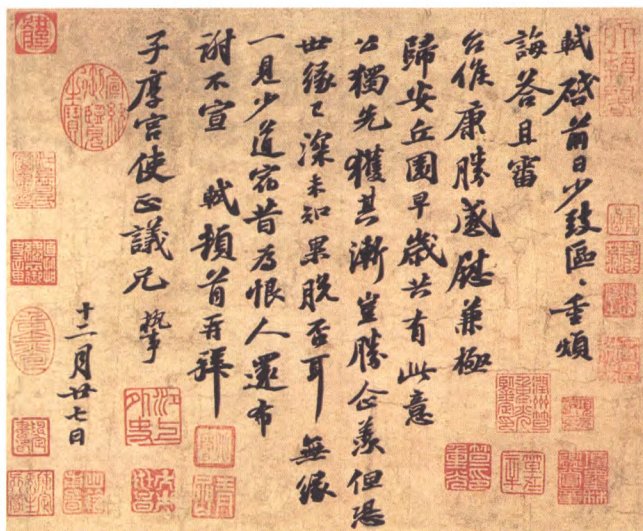 軾啓前日少致區、重煩
誨答且審
台候康勝感慰兼極
歸安丘園早歲共有此意
公獨先獲其漸豈勝企羨但恐
世緣已深未知果脫否耳 無緣
一見少道宿昔為恨人還布
謝不宣 軾頓首再拜
子厚宮使正議兄 執事
十二月廿七日